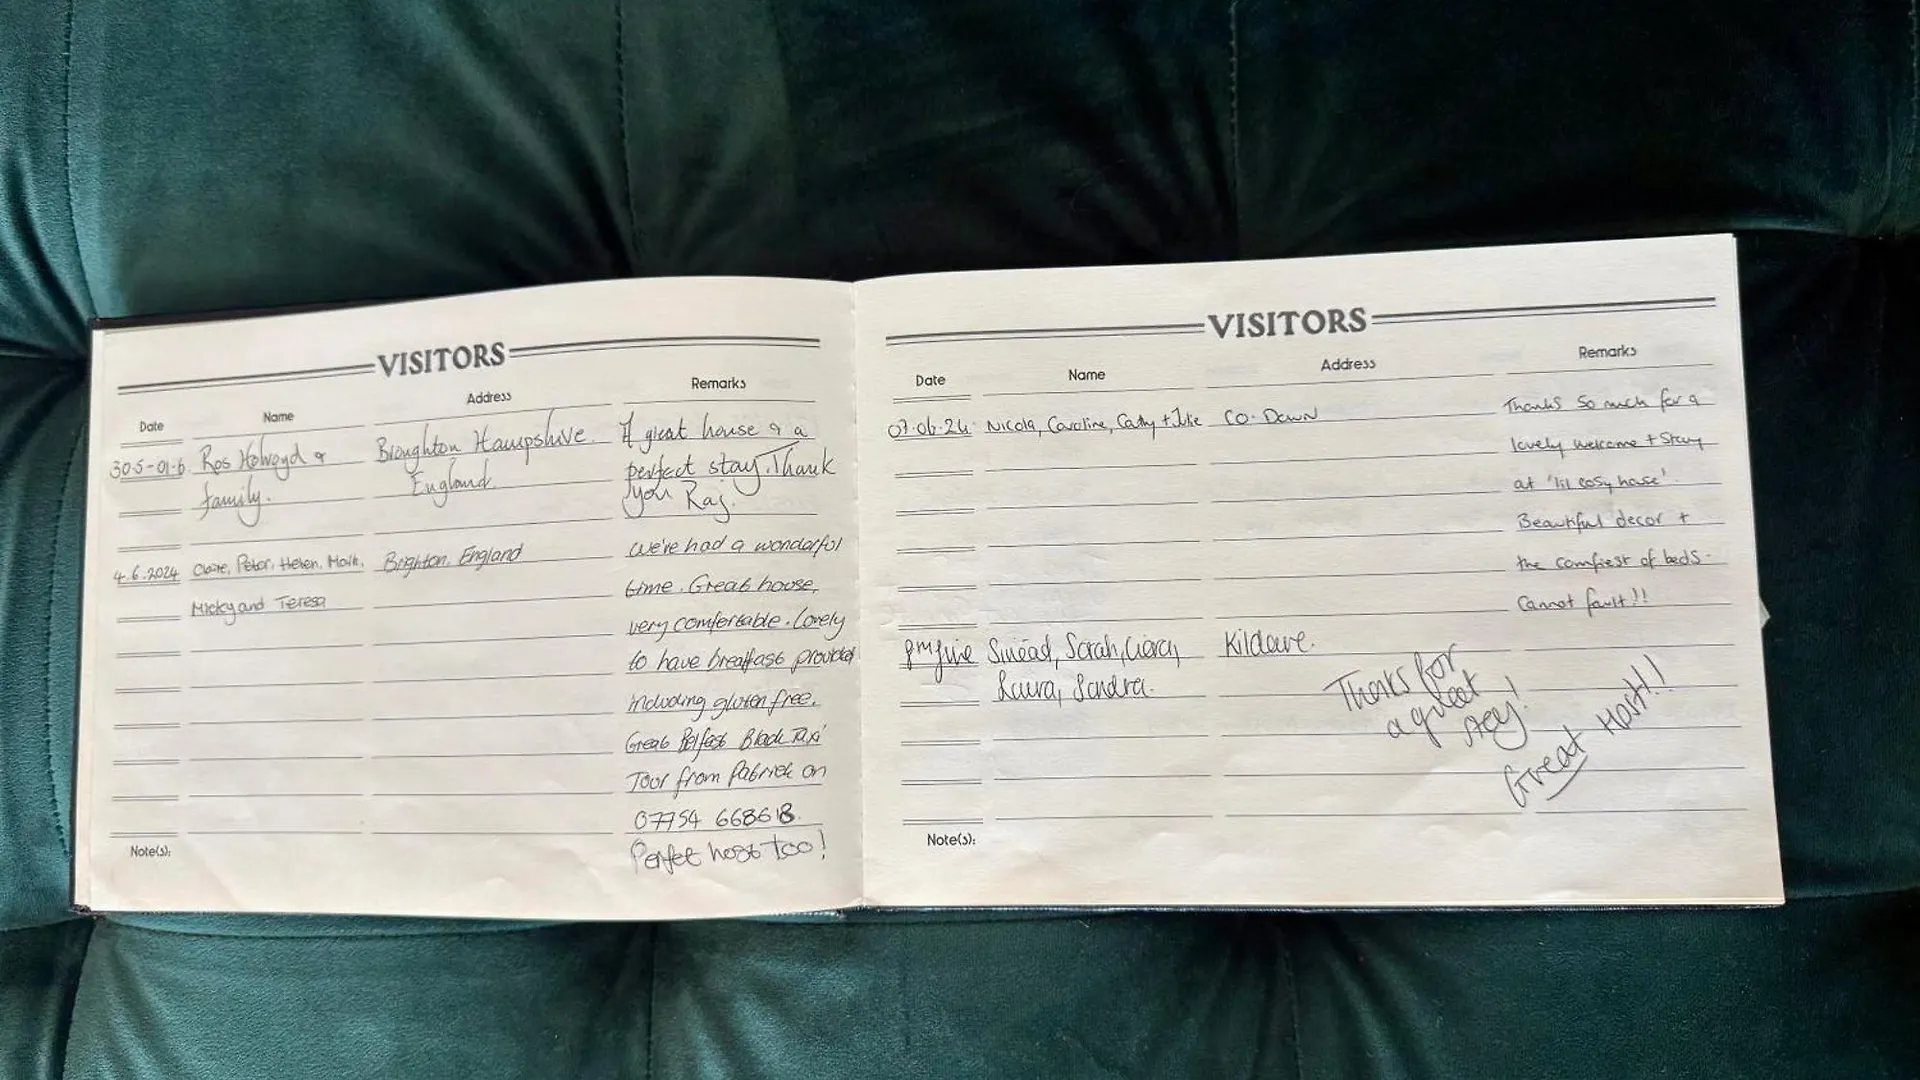 VISITORS
Date Name Address Remarks
30.5-01.6 Ros Holroyd & Broughton Hampshire. A great house & a
family. England. perfect stay. Thank
you Raj.
4.6.2024 Claire, Peter, Helen, Mark, Brighton, England We've had a wonderful
Micky and Teresa time. Great house,
very comfortable. Lovely
to have breakfast provided
including gluten free.
Great Belfast Black Taxi
Tour from Patrick on
07754 668618.
Perfect host too!
Note(s):
VISITORS
Date Name Address Remarks
07.06.24 Nicola, Caroline, Cathy + Julie CO. Down Thanks so much for a
lovely welcome + stay
at 'lil cosy house'.
Beautiful decor +
the comfiest of beds.
Cannot fault!!
8th June Sinéad, Sarah, Ciara, Kildare.
Laura, Sandra.
Thanks for
a great
stay!
Great Host!!
Note(s):